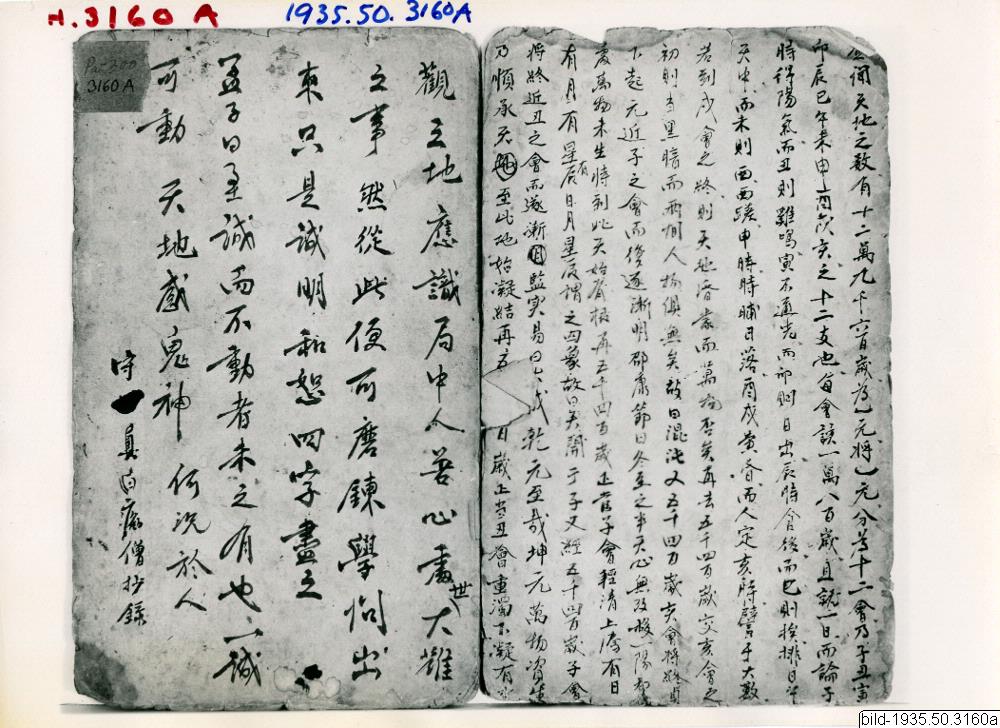 H.3160 A
1935.50.3160A
Pa-200
3160A
聞天地之数有十二萬九千六百歲為一元將一元分為十二會乃子丑寅
卯辰巳午未申酉戌亥之十二支也每會該一萬八百歲且就一日而論子
時得陽氣而丑則雞鳴寅不通光而卯則日出辰時食後而巳則挨排日午
天中而未則西蹉申時晡日落酉戌黄昏而人定亥時譬于大數
若到戌會之終則天地昏曚而萬物否矣再去五千四百歲交亥會之
初則當黑暗而兩間人物俱無矣故曰混沌又五千四百歲亥會將終貞
下起元近子之會而復逐漸明邵康節曰冬至之半天心無改移一陽初
處萬物未生時到此天始有根再五千四百歲正當子會輕清上騰有日
有月有星有辰日月星辰謂之四象故曰天開于子又經五千四百歲子會
將終近丑之會而遂漸監實易曰大哉乾元至哉坤元萬物資生
乃順承天至此地始凝結再五百歲正當丑會重濁下凝有
觀三地應識局中人苦心處大難
世
之事然從此便可磨鍊學問出
來只是誠明和恕四字盡之
孟子曰至誠而不動者未之有也一誠
可動天地感鬼神何況於人
守一員白癡僧抄錄
bild-1935.50.3160a